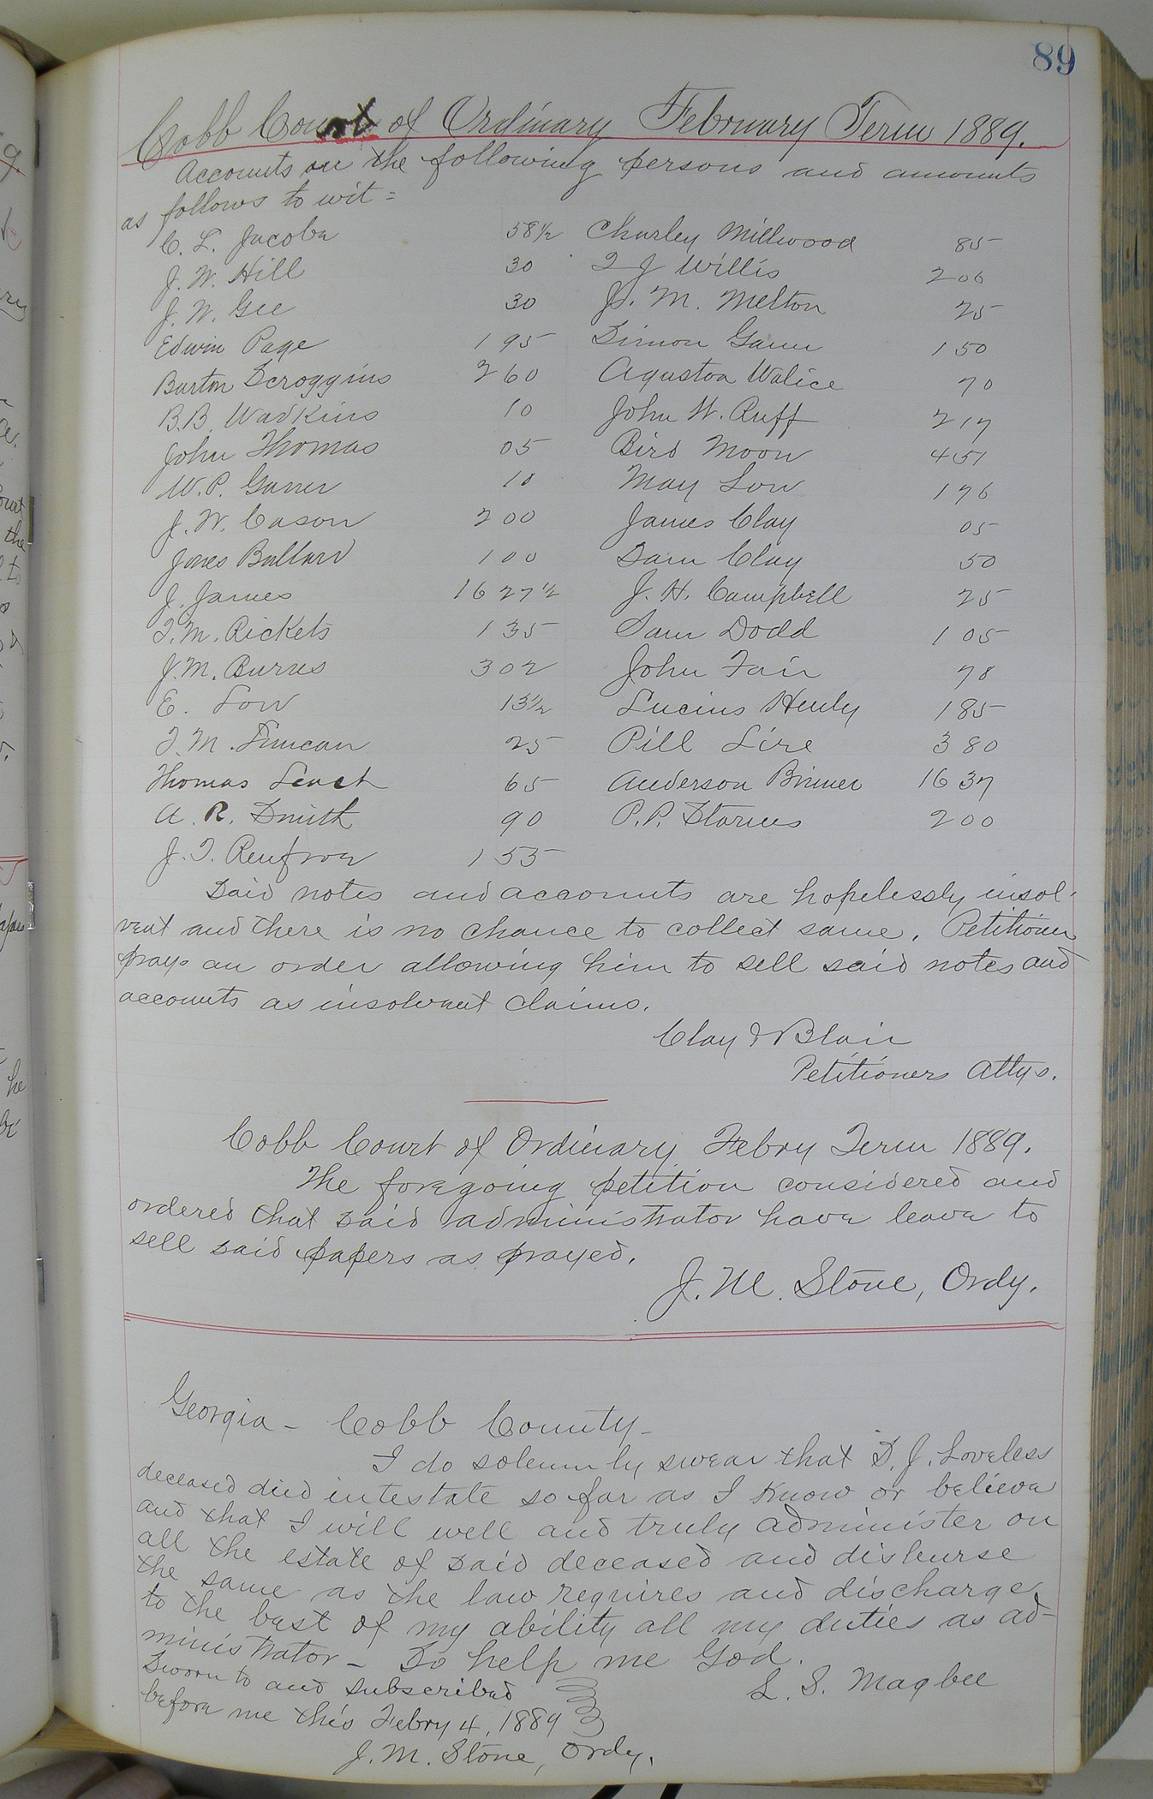 89
Cobb Court of Ordinary February Term 1889.
Accounts on the following persons and amounts
as follows to wit =
C. L. Jacobs 58½ Charley Millwood 85
J. W. Hill 30 T J Willis 200
J. W. Gee 30 J. M. Melton 25
Edwin Page 195 Simon Gann 150
Burton Scroggins 260 Agustoa Walice 70
B.B. Wadkins 10 John W. Ruff 217
John Thomas 05 Bird Moon 451
W. P. Garner 10 May Low 196
J. W. Cason 200 James Clay 05
Jones Ballard 100 Sam Clay 50
J. James 1627½ J. H. Campbell 25
T. M. Rickets 135 Sam Dodd 105
J. M. Burns 302 John Fair 78
E. Low 13½ Lucius Henly 185
T. M. Duncan 25 Pill Sire 380
Thomas Leach 65 Anderson Brimer 1637
A. R. Smith 90 P. P. Starnes 200
J. T. Renfroe 155
Said notes and accounts are hopelessly insol-
vent and there is no chance to collect same. Petitioner
prays an order allowing him to sell said notes and
accounts as insolvent claims.
Clay & Blair
Petitioners Attys.
Cobb Court of Ordinary Febry Term 1889.
The foregoing petition considered and
ordered that said administrator have leave to
sell said papers as prayed.
J. M. Stone, Ordy.
Georgia - Cobb County -
I do solemnly swear that D. J. Loveless
deceased died intestate so far as I know or believe
and that I will well and truly administer on
all the estate of said deceased and disburse
the same as the law requires and discharge
to the best of my ability all my duties as ad-
ministrator - So help me God.
Sworn to and subscribed L. S. Magbee
before me this Febry 4, 1889
J. M. Stone, Ordy.